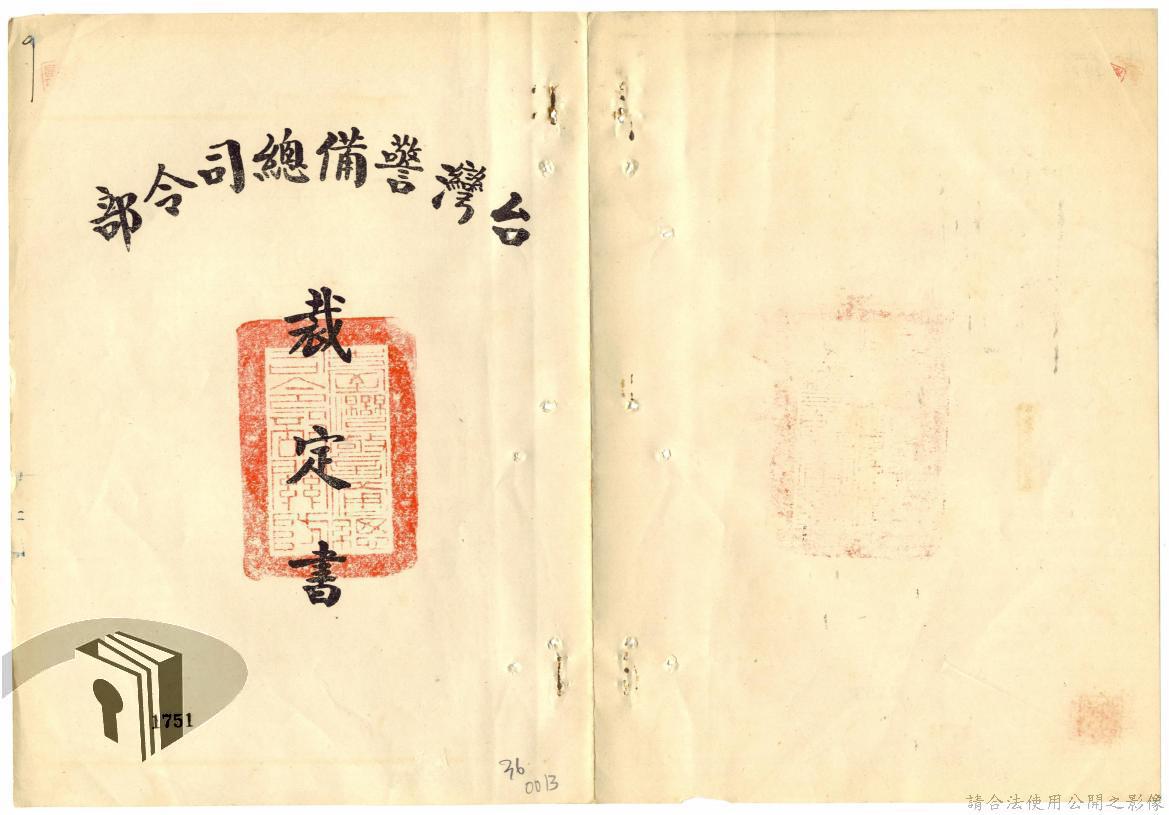 台灣警備總司令部
裁定書
1751
36
0013
請合法使用公開之影像